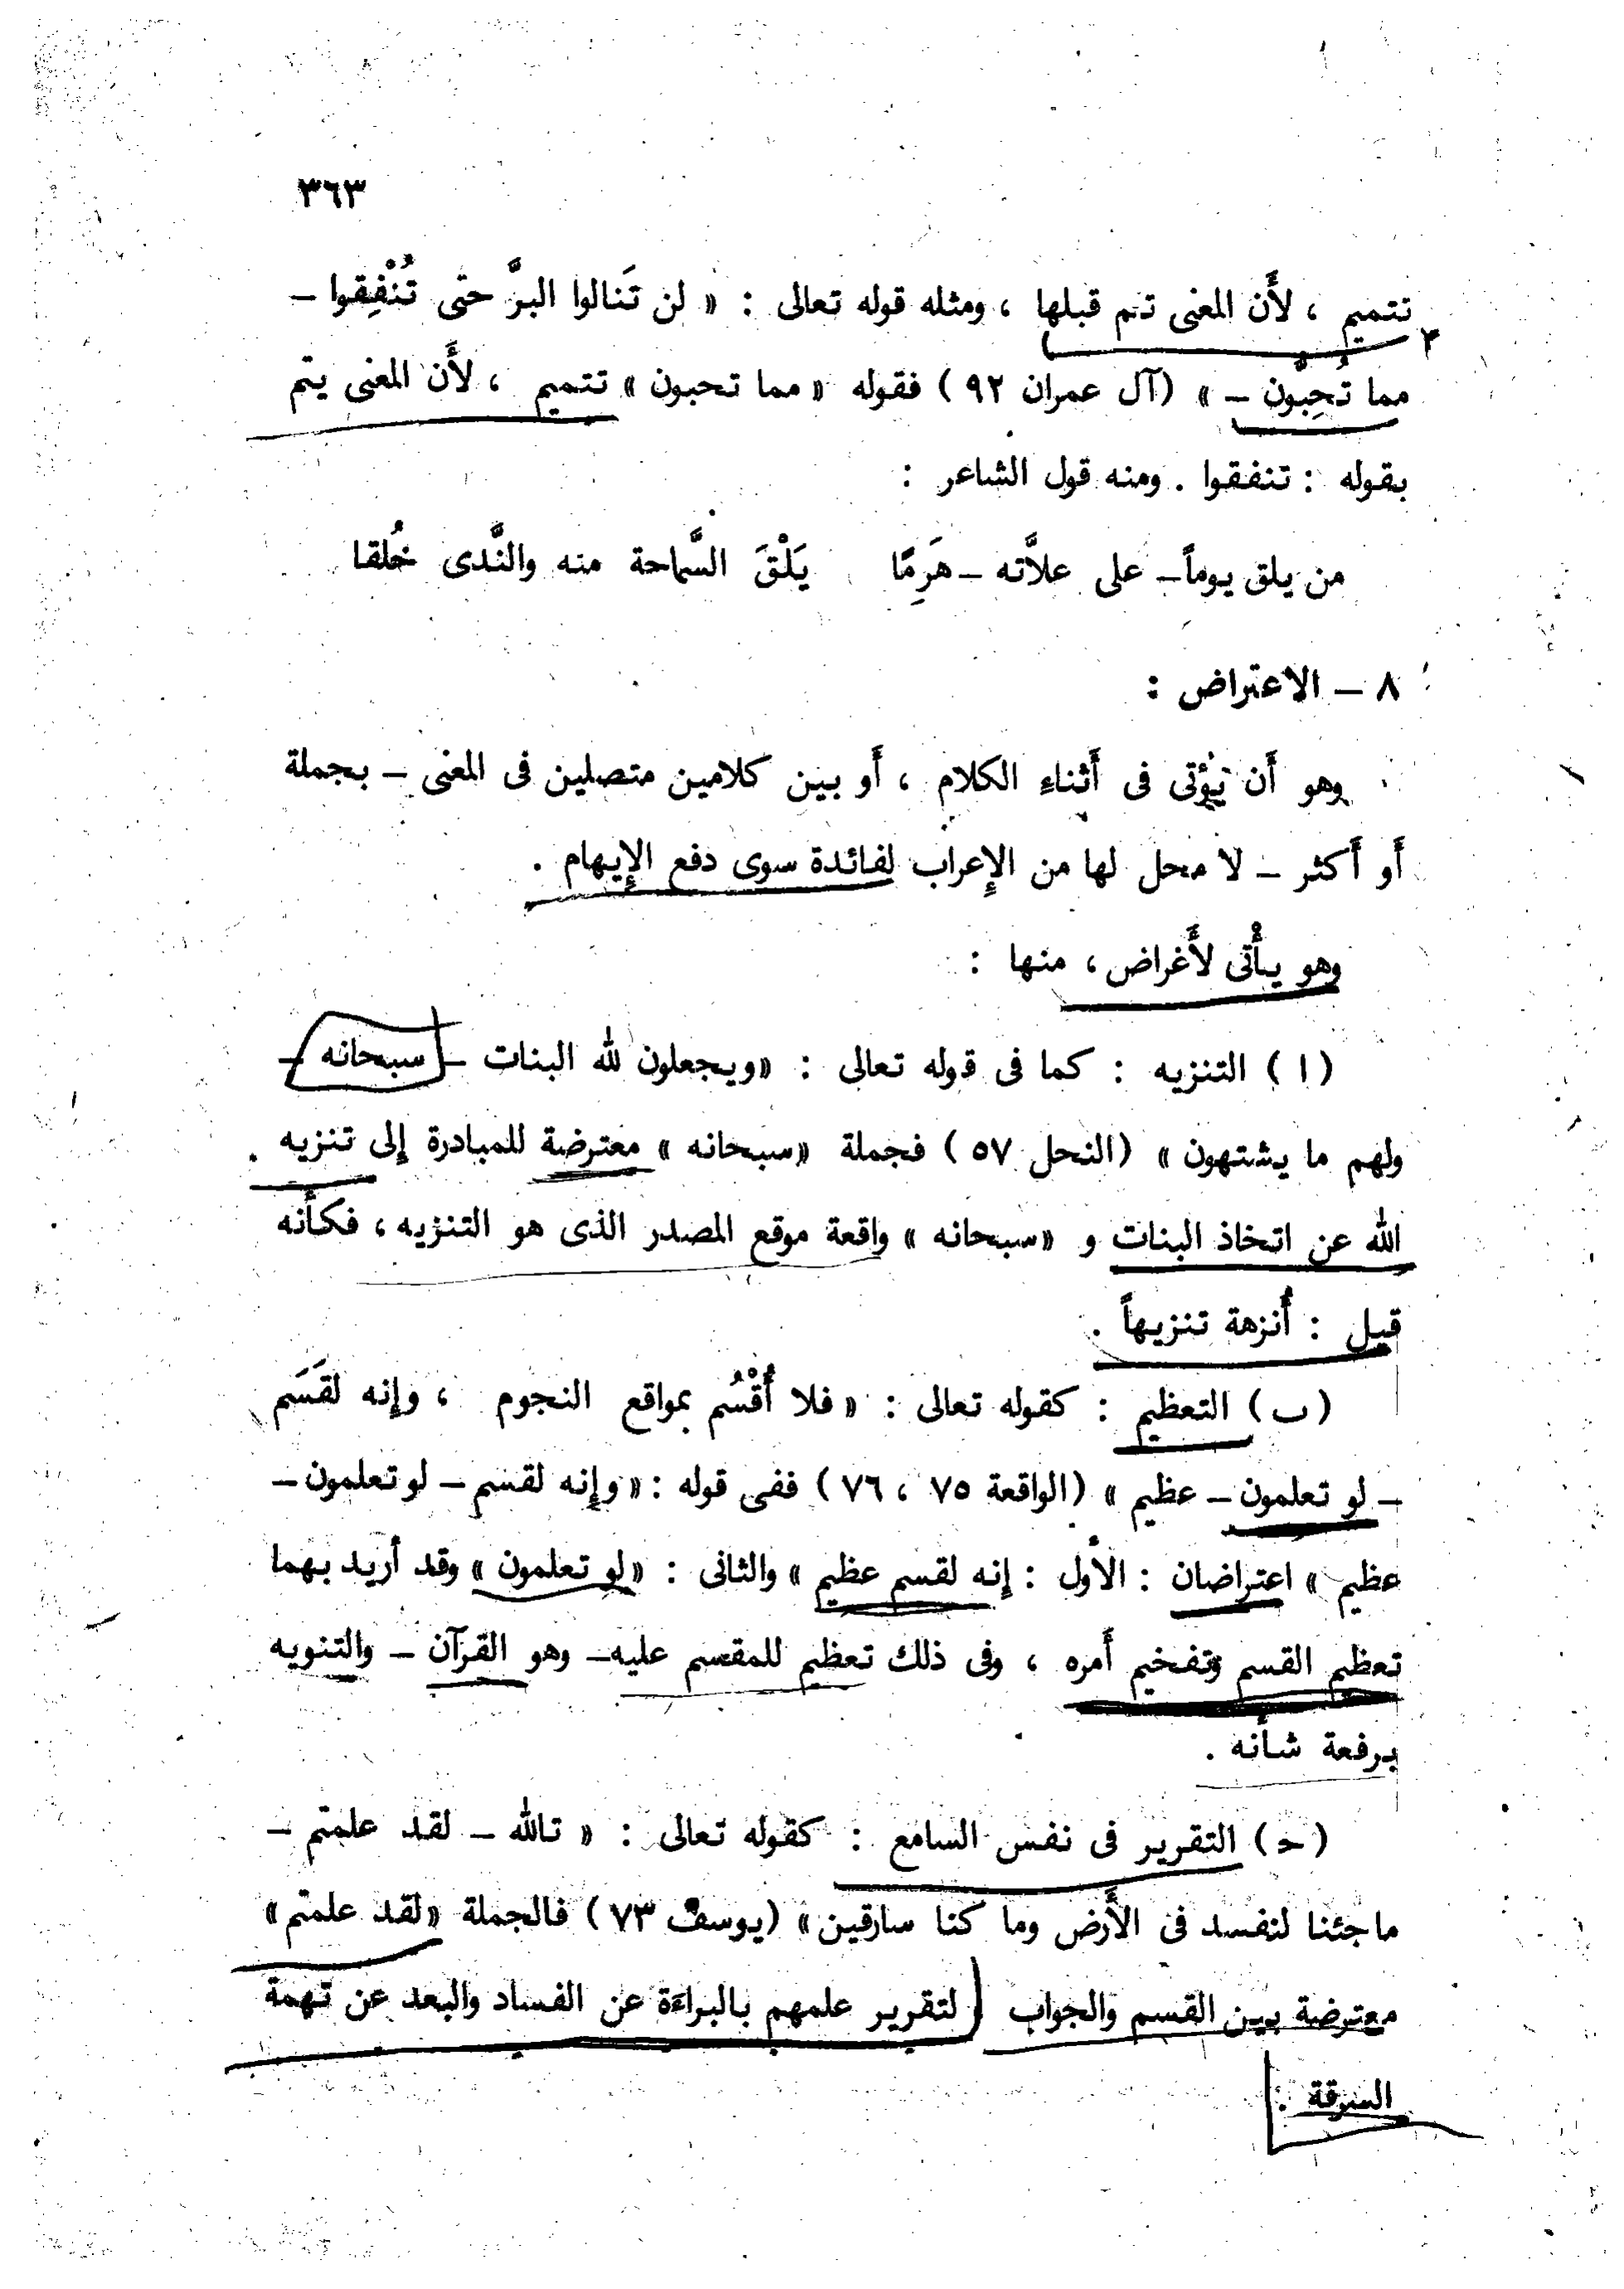 ٣٦٣
تتميم ، لأَن المعنى تم قبلها ، ومثله قوله تعالى : « لن تَنالوا البرَّ حتى تُنْفِقوا –
مما تُحِبُّون – » (آل عمران ٩٢ ) فقوله « مما تحبون » تتميم ، لأَن المعنى يتم
بقوله : تنفقوا . ومنه قول الشاعر :
من يلق يوماً – على علاَّته – هَرِمًا يَلْقَ السَّماحة منه والنَّدى خُلقا
٨ – الاعتراض :
وهو أَن يُؤتى فى أَثناءِ الكلام ، أَو بين كلامين متصلين فى المعنى – بجملة
أَو أَكثر – لا محل لها من الإِعراب لفائدة سوى دفع الإِيهام .
وهو يأْتى لأَغراض ، منها :
( ا ) التنزيه : كما فى قوله تعالى : «ويجعلون لله البنات – سبحانه –
ولهم ما يشتهون » (النحل ٥٧ ) فجملة «سبحانه » معترضة للمبادرة إِلى تنزيه .
الله عن اتخاذ البنات و «سبحانه » واقعة موقع المصدر الذى هو التنزيه ، فكأَنه
قيل : أُنزهة تنزيهاً .
(ب) التعظيم : كقوله تعالى : « فلا أُقْسُم بمواقع النجوم ، وإنه لقَسَم
– لو تعلمون – عظيم » (الواقعة ٧٥ ، ٧٦ ) ففى قوله : « وإِنه لقسم – لو تعلمون –
عظيم » اعتراضان : الأَول : إِنه لقسم عظيم » والثانى : «لو تعلمون » وقد أريد بهما
تعظيم القسم وتفخيم أَمره ، وفى ذلك تعظيم للمقسم عليه – وهو القرآن – والتنويه
برفعة شأنه .
(ح) التقرير فى نفس السامع : كقوله تعالى : « تالله – لقد علمتم –
ما جئنا لنفسد فى الأَرض وما كنا سارقين » (يوسف ٧٣ ) فالجملة «لقد علمتم »
معترضة بين القسم والجواب لتقرير علمهم بالبراءَة عن الفساد والبعد عن تهمة
السرقة .